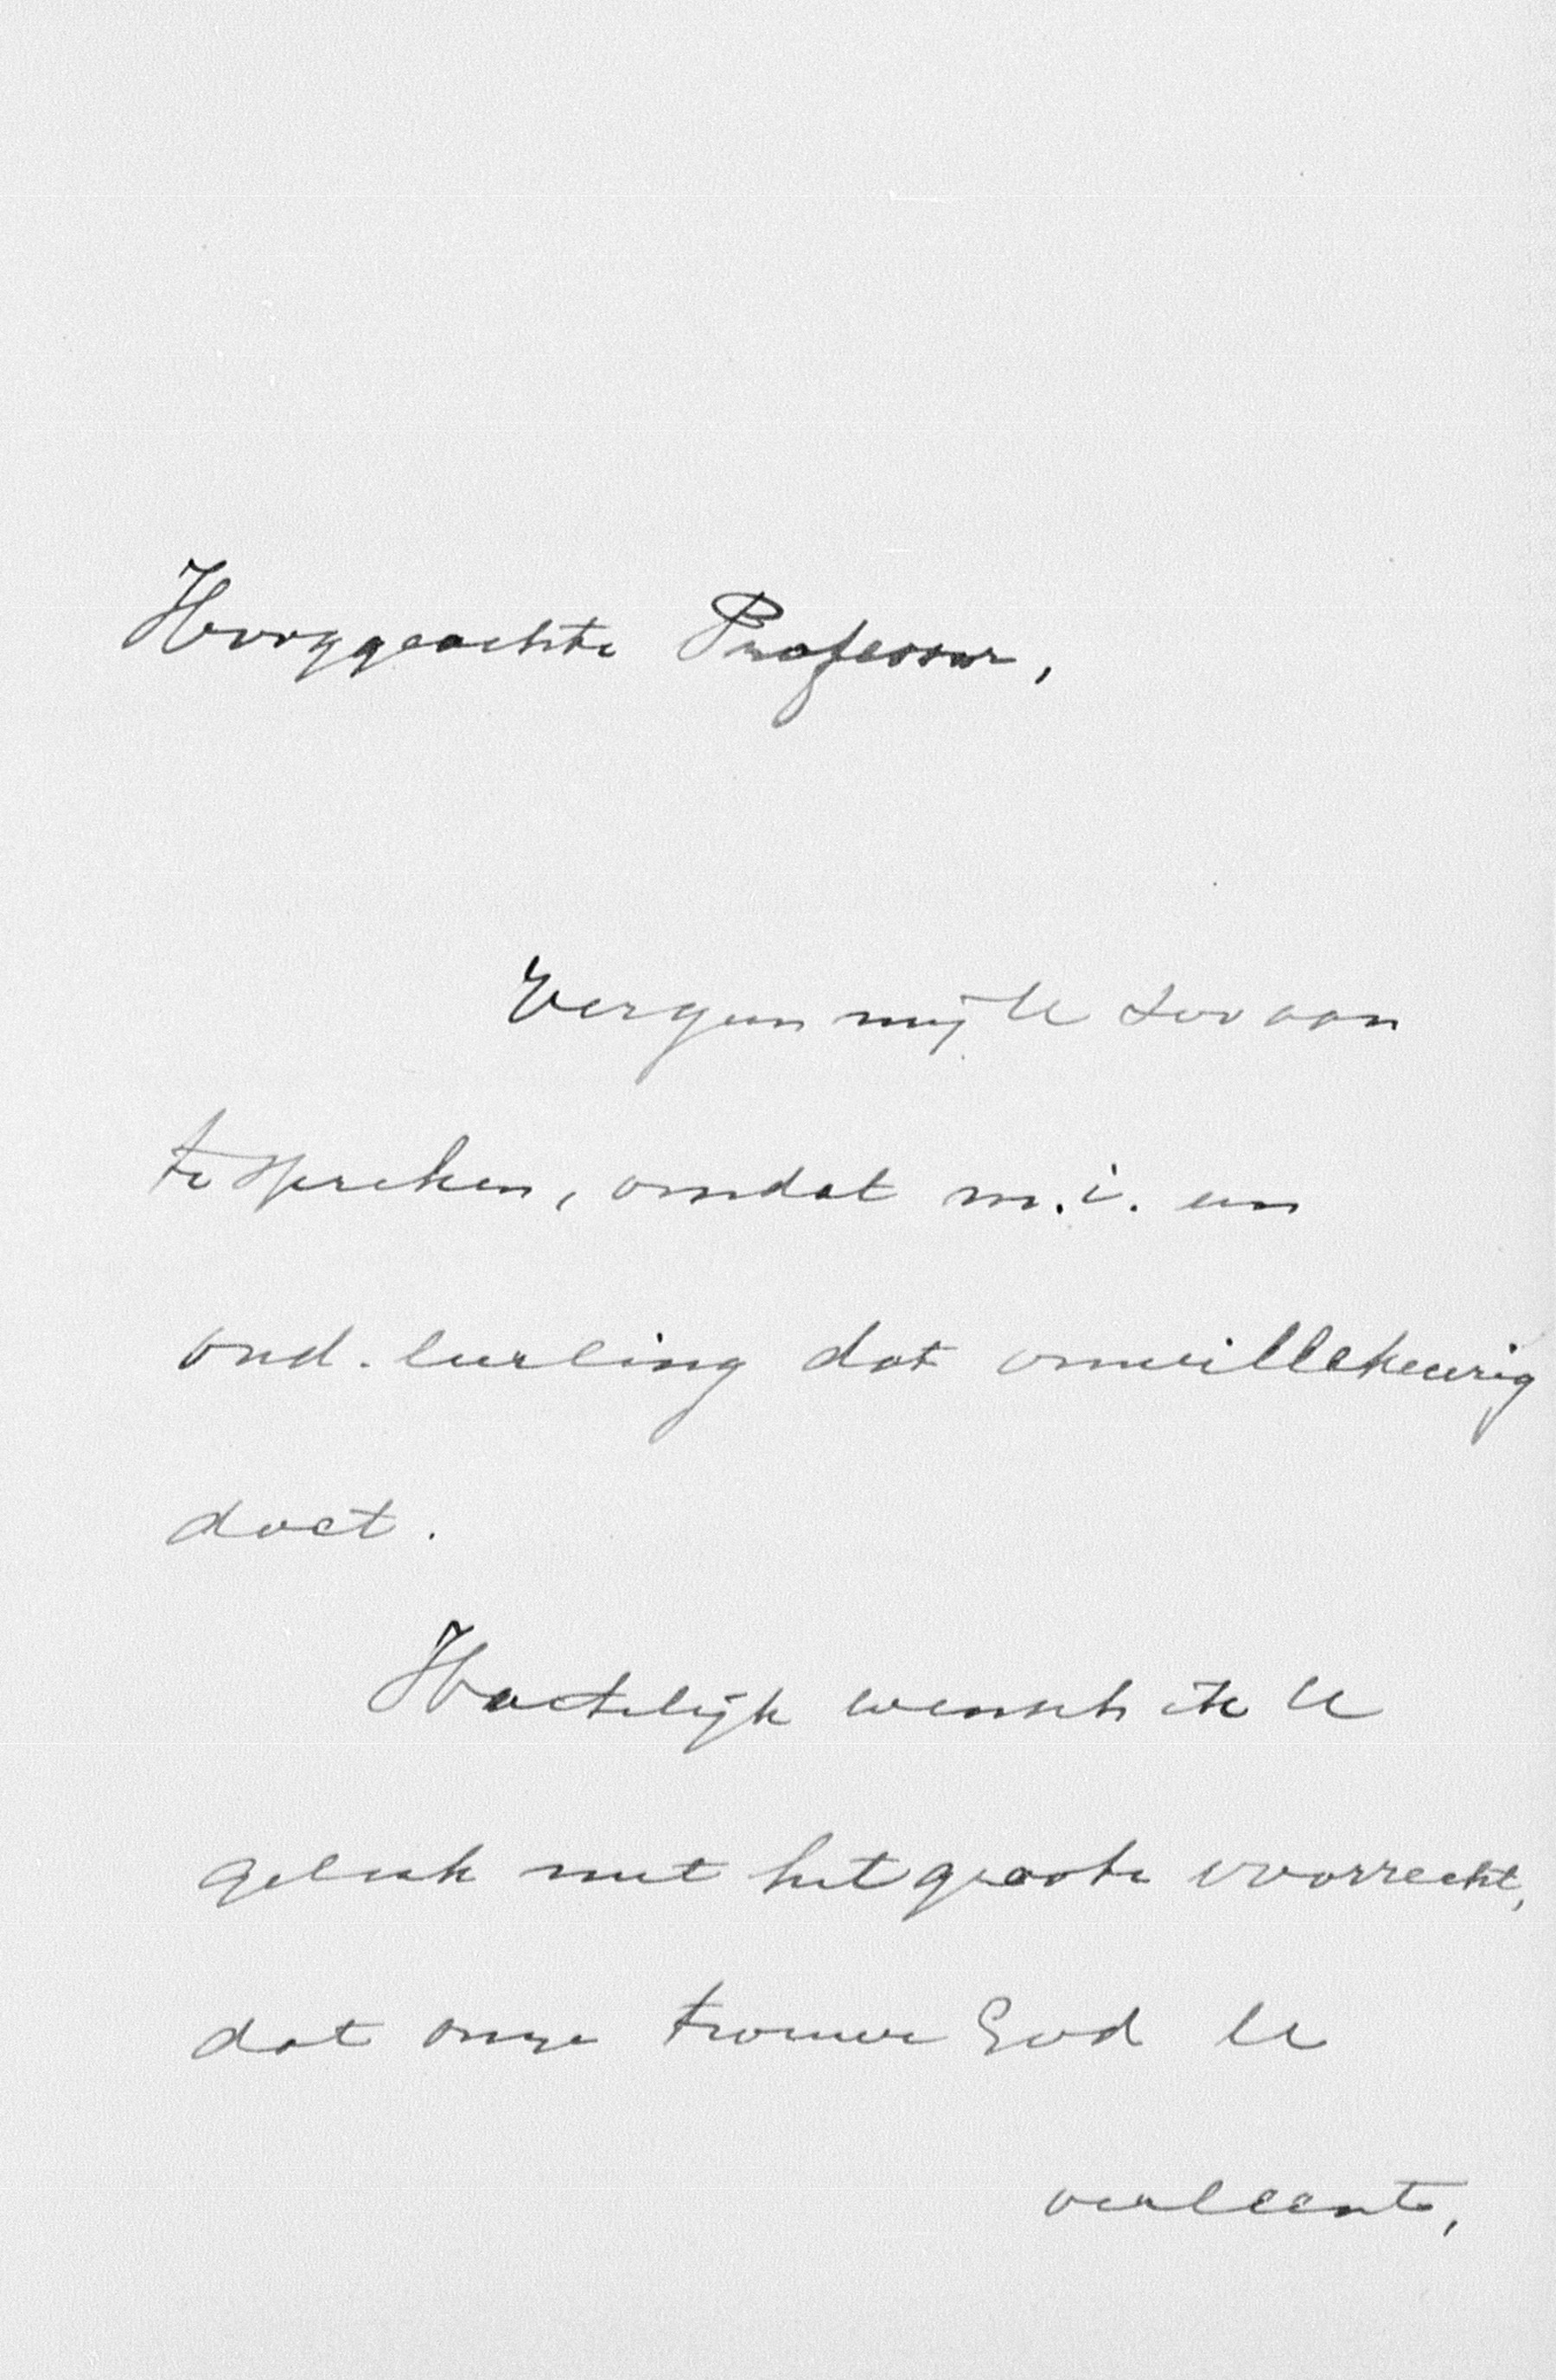 Hooggeachte Professor,
Vergun mij U zoo aan
te spreken, omdat m.i. een
oud-leerling dat onwillekeurig
doet.
Hartelijk wensch ik U
geluk met het groote voorrecht,
dat onze trouwe God U
verleent,